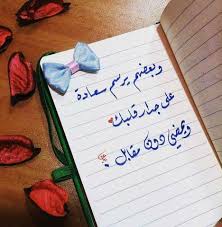 وبعضهم يرسم سعادة
على جدار قلبك
ويمضي دون مقابل